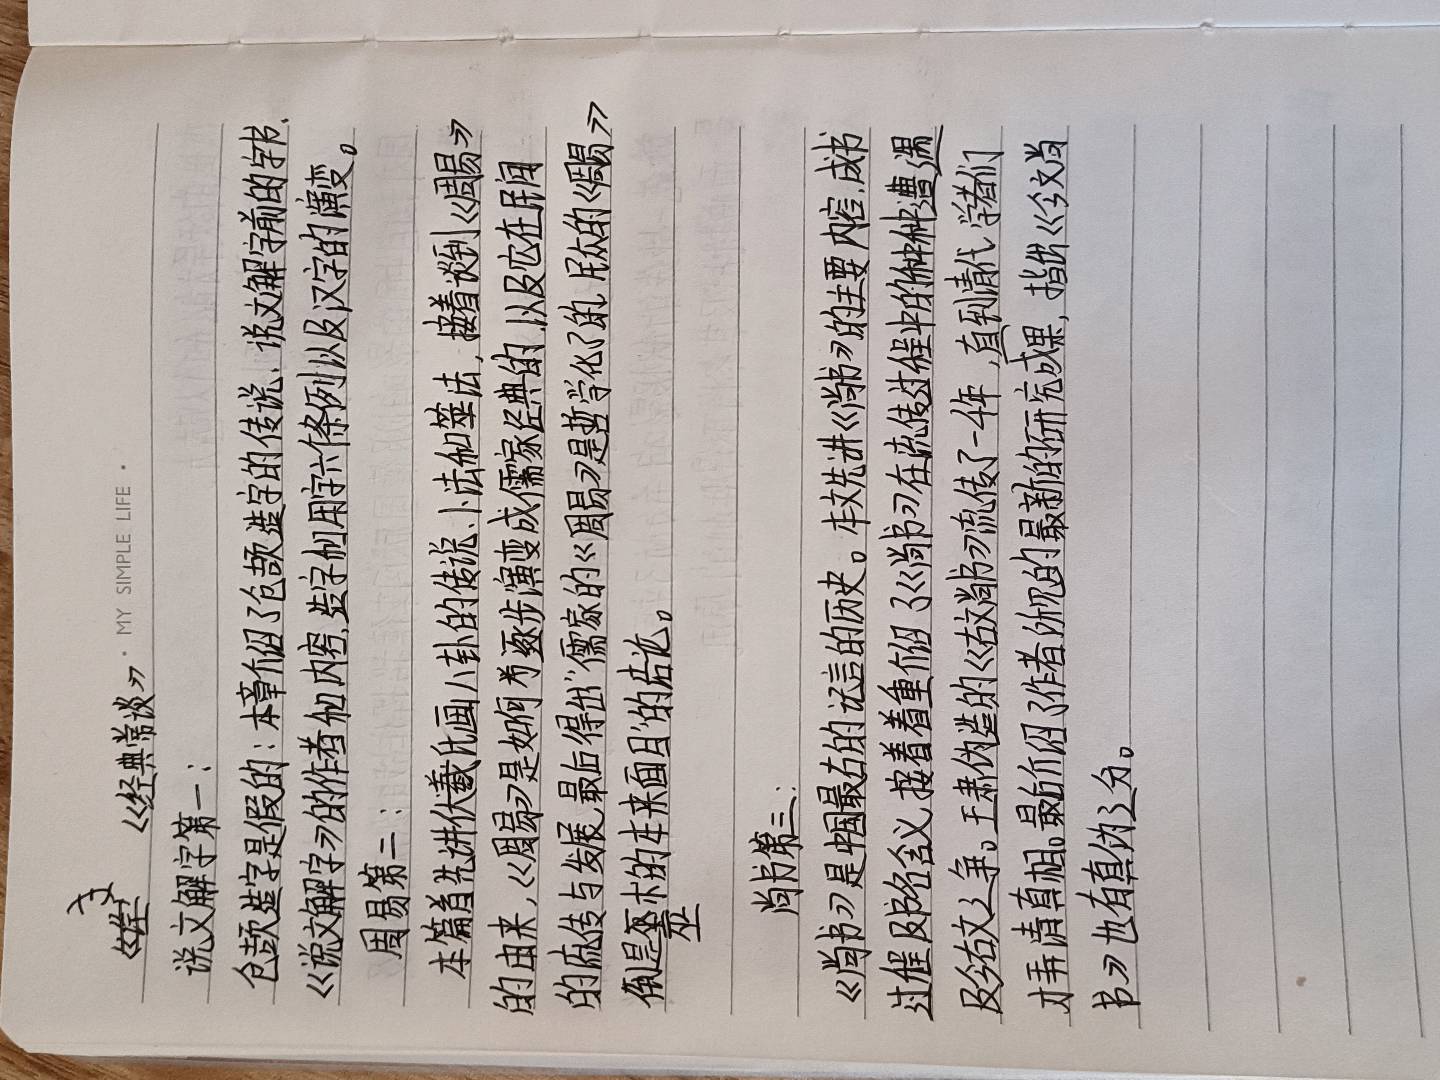 · MY SIMPLE LIFE ·
《经典常谈》
说文解字第一：
仓颉造字是假的：本章介绍了仓颉造字的传说、说文解字前的字书、
《说文解字》的作者和内容，造字和用字六条例以及汉字的演变。
周易第二：
本篇首先讲伏羲氏画八卦的传说、卜法和筮法，接着谈到《周易》
的由来，《周易》是如何为逐步演变成儒家经典的，以及它在民间
的流传与发展，最后得出“儒家的《周易》是哲学化了的，民众的《周易》
倒是巫术的本来面目”的结论。
巫
尚书第三：
《尚书》是中国最古的记言的历史。本文先讲《尚书》的主要内容，成书
过程及略含义，接着着重介绍了《尚书》在流传过程中的种种遭遇
及今古文之争。王肃伪造的《古文尚书》流传了一千年，直到清代学者们
才弄清真相。最后介绍了作者所见的最新的研究成果，指出《今文尚
书》也有真伪之分。